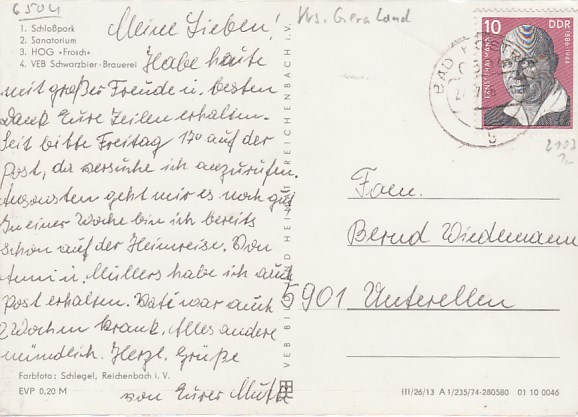 6504
Krs. Gera Land
1. Schloßpark
2. Sanatorium
3. HOG »Frosch«
4. VEB Schwarzbier-Brauerei
Meine Lieben!
Habe heute
mit großer Freude u. besten
Dank Eure Zeilen erhalten.
Seid bitte Freitag 17⁰ auf der
Post, da versuche ich anzurufen.
Ansonsten geht mir es noch gut
In einer Woche bin ich bereits
schon auf der Heimreise. Von
u. Müllers habe ich auch
Post erhalten. war auch
2 Wochen krank. Alles andere
mündlich. Herzl. Grüße
von Eurer Mutti
Farbfoto: Schlegel, Reichenbach i. V.
EVP 0,20 M
VEB BILD UND HEIMAT REICHENBACH I. V.
10 DDR
ERNST THÄLMANN
1886-1944
BAD
Fam.
Bernd Wiedemann
5901 Unterellen
III/26/13 A 1/235/74-280580 01 10 0046